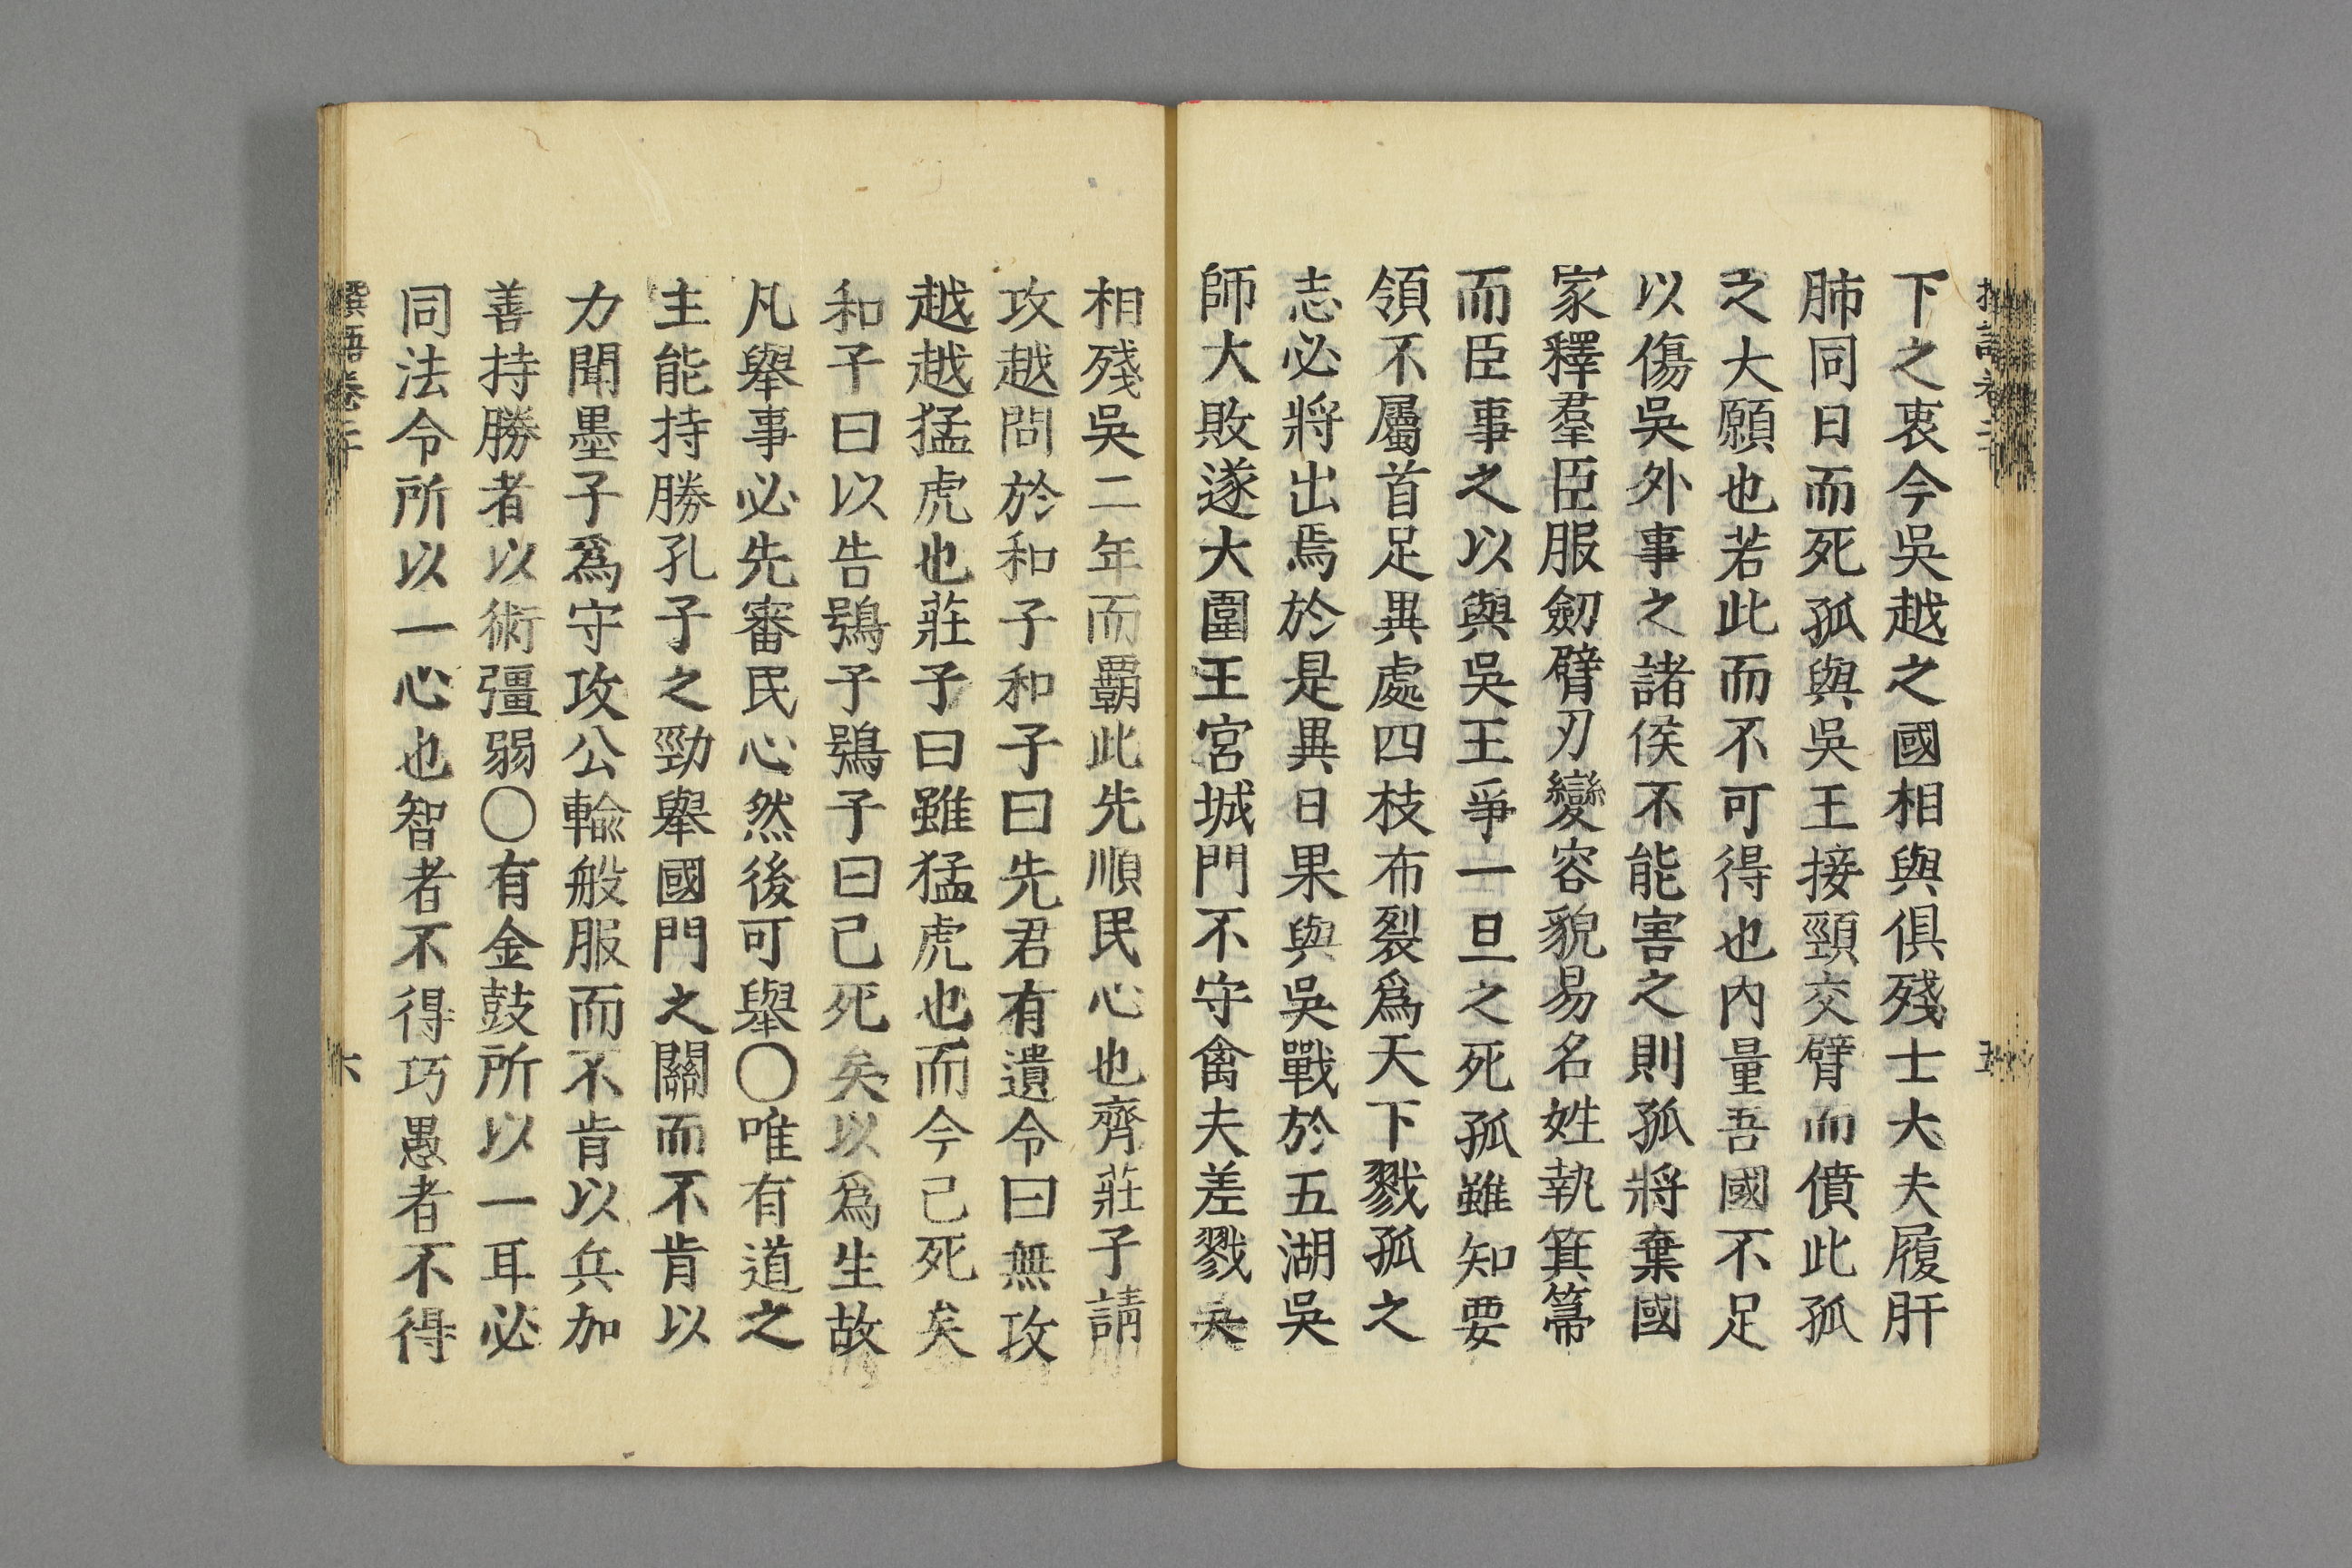 下之衷今吳越之國相與俱殘士大夫履肝
肺同日而死孤與吳王接頸交臂而僨此孤
之大願也若此而不可得也內量吾國不足
以傷吳外事之諸侯不能害之則孤將棄國
家釋羣臣服劒臂刃變容貌易名姓執箕箒
而臣事之以與吳王爭一旦之死孤雖知要
領不屬首足異處四枝布裂爲天下戮孤之
志必將出焉於是異日果與吳戰於五湖吳
師大敗遂大圍王宮城門不守禽夫差戮吳
相殘吳二年而覇此先順民心也齊莊子請
攻越問於和子和子曰先君有遺令曰無攻
越越猛虎也莊子曰雖猛虎也而今已死矣
和子曰以告鴞子鴞子曰已死矣以爲生故
凡舉事必先審民心然後可舉〇唯有道之
主能持勝孔子之勁舉國門之關而不肯以
力聞墨子爲守攻公輸般服而不肯以兵加
善持勝者以術彊弱〇有金鼓所以一耳必
同法令所以一心也智者不得巧愚者不得
語卷二
六